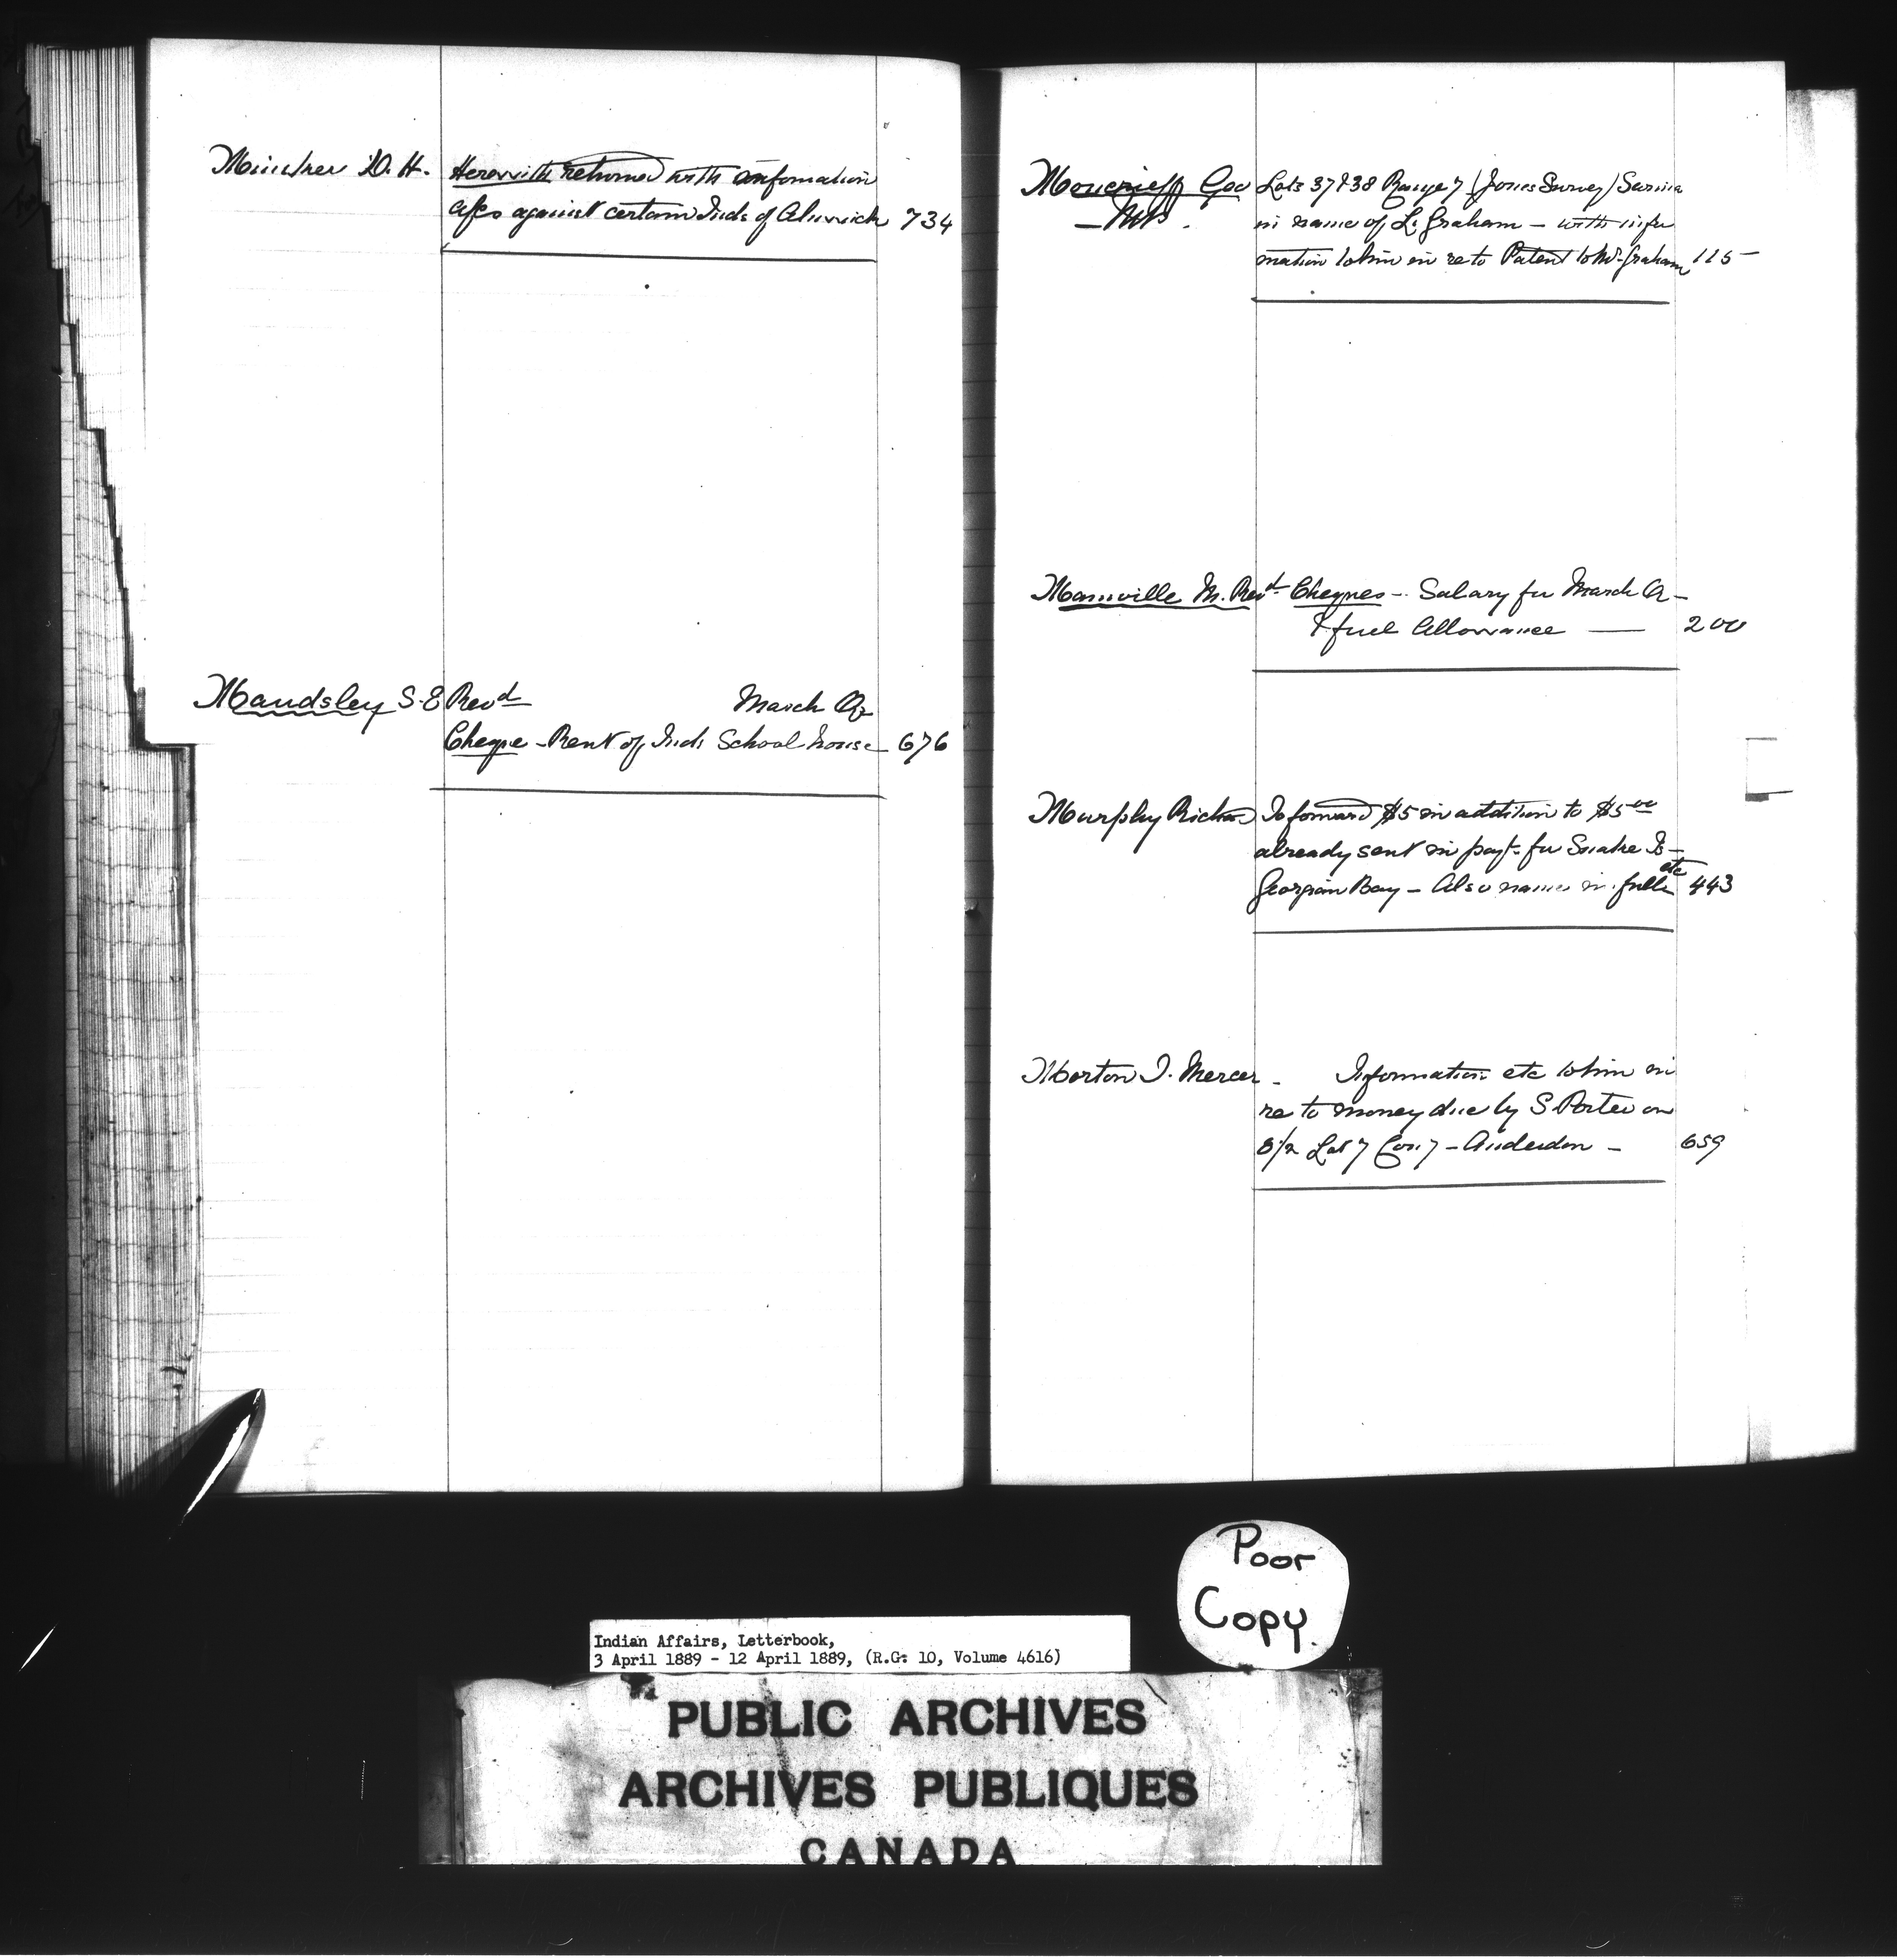 D. H. Herewith returned with information
against certain Inds of Alnwick 734
Maudsley S. E Revd March Qr
Cheque - Rent of Ind. School house - 676
Moncrieff Geo Lots 37 & 38 Range 7 (Jones Survey) Sarnia
- M.P. in name of L. Graham - with infor
mation to him in re to Patent to Mr Graham 115
Manville M. Revd Cheques - Salary for March Q -
& fuel Allowance — 200
Murphy Richard To forward $5 in addition to $5.00
already sent in payt. for Snake Is -
Georgian Bay - Also names in full etc 443
Morton J. Mercer - Information etc to him in
re to money due by S Porter on
/2 Lot 7 Con 7 - Anderdon - 659
Poor
Copy.
Indian Affairs, Letterbook,
3 April 1889 - 12 April 1889, (R.G: 10, Volume 4616)
PUBLIC ARCHIVES
ARCHIVES PUBLIQUES
CANADA